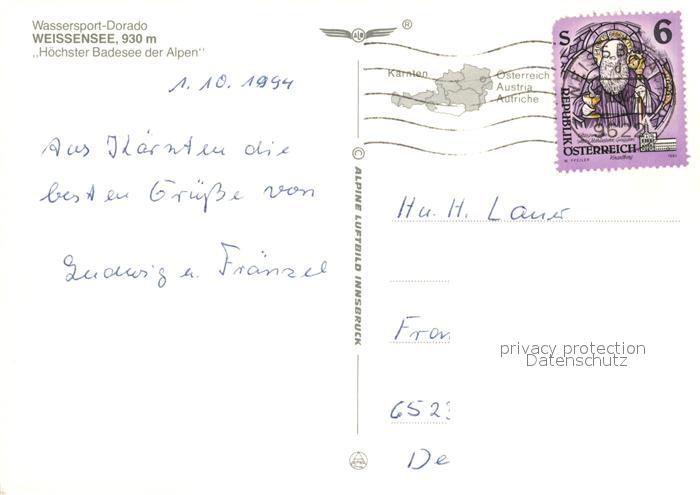 Wassersport-Dorado
WEISSENSEE, 930 m
„Höchster Badesee der Alpen"
1. 10. 1994
Aus Kärnten die
besten Grüße von
Ludwig u. Fränzel
®
Kärnten
Österreich
Austria
Autriche
© ALPINE LUFTBILD INNSBRUCK
S 6
REPUBLIK
ÖSTERREICH
9622
Hn. H. Lauer
Fran
6523
De
privacy protection
Datenschutz